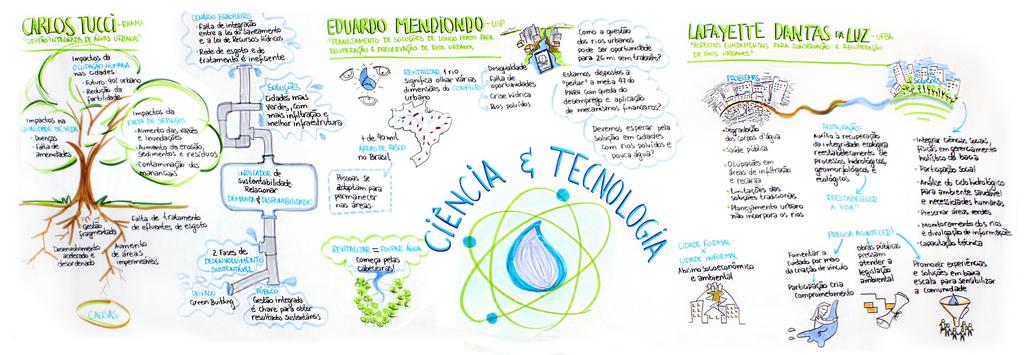 CARLOS TUCCI - RHAMA
"GESTÃO INTEGRADA DE ÁGUAS URBANAS"
Impactos da
OCUPAÇÃO HUMANA
nas cidades:
• Futuro: 90% urbano
• Redução da
fertilidade
Impactos na
QUALIDADE DE VIDA
• Doenças
• Falta de
amenidades
Impactos da
FALTA DE SERVIÇOS
• Aumento das vazões
e inundações
• Aumento da erosão,
sedimentos e resíduos
• Contaminação dos
mananciais
Gestão
fragmentada
Falta de tratamento
de efluentes de esgoto
Desenvolvimento
acelerado e
desordenado
Aumento
de áreas
impermeáveis
CAUSAS
CENÁRIO BRASILEIRO
• Falta de integração
entre a lei do Saneamento
e a lei de Recursos Hídricos
• Rede de esgoto e de
tratamento é ineficiente
SOLUÇÕES
Cidades mais
verdes, com
mais infiltração e
melhor infraestrutura
INDICADOR de
sustentabilidade
Relacionar
DEMANDA E DISPONIBILIDADE
2 Fases de
DESENVOLVIMENTO
SUSTENTÁVEL
PRIVADO
Green Building
PÚBLICO
Gestão integrada
é chave para obter
resultados sustentáveis
EDUARDO MENDIONDO - USP
"PLANEJAMENTO DE SOLUÇÕES DE LONGO PRAZO PARA
RECUPERAÇÃO E PRESERVAÇÃO DE RIOS URBANOS"
REVITALIZAR 1 rio
significa olhar várias
dimensões do CONFLITO
urbano
• Desigualdade
• Falta de
oportunidades
• Crise hídrica
• Rios poluídos
+ de 40 mil
ÁREAS DE RISCO
no Brasil
Pessoas se
adaptam para
permanecer
nas áreas.
REVITALIZAR = POUPAR ÁGUA
Começa pelas
cabeceiras!
Como a questão
dos rios urbanos
pode ser oportunidade
para 26 mi sem trabalho?
Estamos dispostos a
"peitar" a meta 47 do
PNRH com queda do
desemprego e aplicação
de mecanismos financeiros?
Devemos esperar pela
solução em cidades
com rios poluídos e
pouca água?
CIÊNCIA & TECNOLOGIA
LAFAYETTE DANTAS DA LUZ - UFBA
"ASPECTOS FUNDAMENTAIS PARA CONSERVAÇÃO E RECUPERAÇÃO
DE RIOS URBANOS"
PROBLEMAS
• Degradação
dos corpos d'água
• Saúde pública
• Ocupações em
áreas de infiltração
e recarga
• Limitações das
soluções tradicionais
• Planejamento urbano
não incorpora os rios
REVITALIZAÇÃO:
Auxílio à recuperação
da integridade ecológica
reestabelecimento de
processos hidrológicos,
geomorfológicos e
ecológicos
REESTABELECER
A VIDA"
SOLUÇÕES
• Integrar ciências sociais,
físicas em gerenciamento
holístico da bacia
• Participação social
• Análise do ciclo hidrológico
para ambiente saudável
e necessidades humanas
• Preservar áreas verdes.
• Monitoramento dos rios
e divulgação de informações
• Capacitação técnica
CIDADE FORMAL
X
CIDADE INFORMAL
Abismo socioeconômico
e ambiental
PRECISA ACONTECER!
Fomentar o
cuidado por meio
da criação de vínculo
Participação cria
comprometimento
Obras públicas
precisam
atender a
legislação
ambiental
Promover experiências
e soluções em baixa
escala para sensibilizar
a comunidade